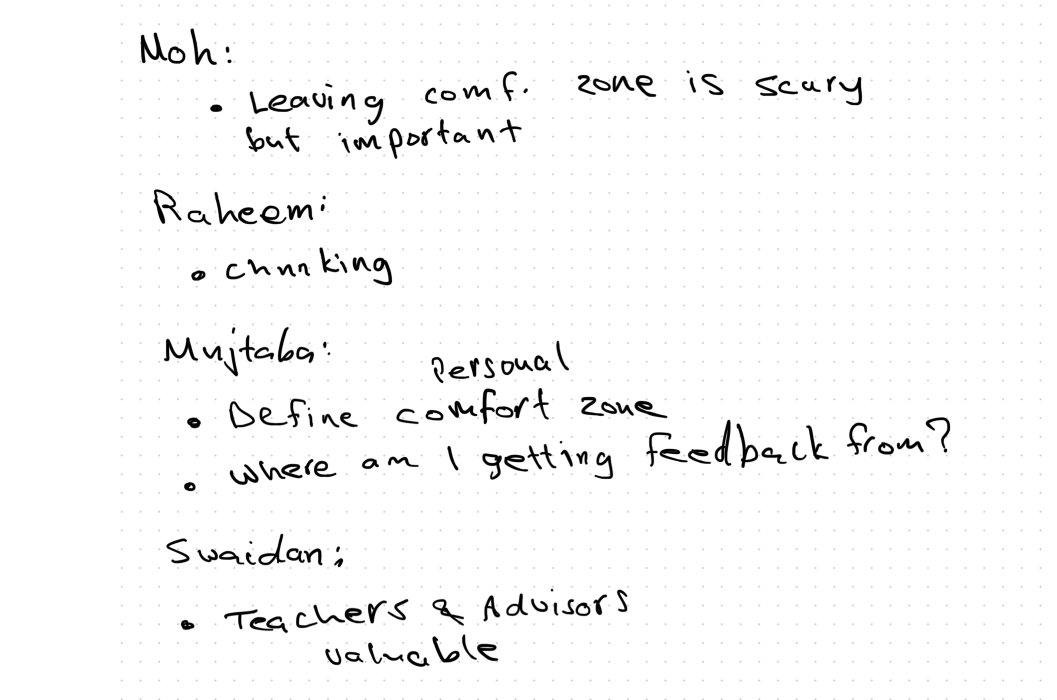 Moh:
• Leaving comf. zone is scary
but important
Raheem:
• chunking
Mujtaba:
Personal
• Define comfort zone
• where am I getting feedback from?
Swaidan:
• Teachers & Advisors
valuable